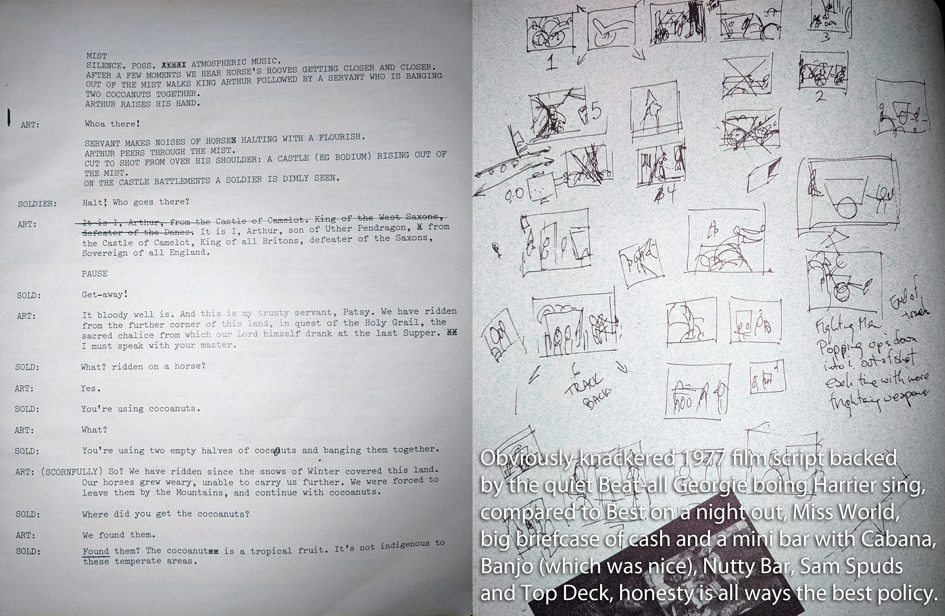 MIST
SILENCE. POSS. XXXXX ATMOSPHERIC MUSIC.
AFTER A FEW MOMENTS WE HEAR HORSE'S HOOVES GETTING CLOSER AND CLOSER.
OUT OF THE MIST WALKS KING ARTHUR FOLLOWED BY A SERVANT WHO IS BANGING
TWO COCOANUTS TOGETHER.
ARTHUR RAISES HIS HAND.
ART: Whoa there!
SERVANT MAKES NOISES OF HORSEX HALTING WITH A FLOURISH.
ARTHUR PEERS THROUGH THE MIST.
CUT TO SHOT FROM OVER HIS SHOULDER: A CASTLE (EG BODIUM) RISING OUT OF
THE MIST.
ON THE CASTLE BATTLEMENTS A SOLDIER IS DIMLY SEEN.
SOLDIER: Halt! Who goes there?
ART: It is I, Arthur, from the Castle of Camelot. King of the West Saxons,
defeater of the Danes. It is I, Arthur, son of Uther Pendragon, X from
the Castle of Camelot, King of all Britons, defeater of the Saxons,
Sovereign of all England.
PAUSE
SOLD: Get-away!
ART: It bloody well is. And this is my trusty servant, Patsy. We have ridden
from the further corner of this land, in quest of the Holy Grail, the
sacred chalice from which our Lord himself drank at the last Supper. XX
I must speak with your master.
SOLD: What? ridden on a horse?
ART: Yes.
SOLD: You're using cocoanuts.
ART: What?
SOLD: You're using two empty halves of cocoauts and banging them together.
ART: (SCORNFULLY) So? We have ridden since the snows of Winter covered this land.
Our horses grew weary, unable to carry us further. We were forced to
leave them by the Mountains, and continue with cocoanuts.
SOLD: Where did you get the cocoanuts?
ART: We found them.
SOLD: Found them? The cocoanutxx is a tropical fruit. It's not indigenous to
these temperate areas.
1
3
2
5
4
TRACK
BACK
End of
Fighting
Popping up
into & out of shot
each time with more
weapons
Obviously knackered 1977 film script backed
by the quiet Beat-all Georgie boing Harrier sing,
compared to Best on a night out, Miss World,
big briefcase of cash and a mini bar with Cabana,
Banjo (which was nice), Nutty Bar, Sam Spuds
and Top Deck, honesty is all ways the best policy.